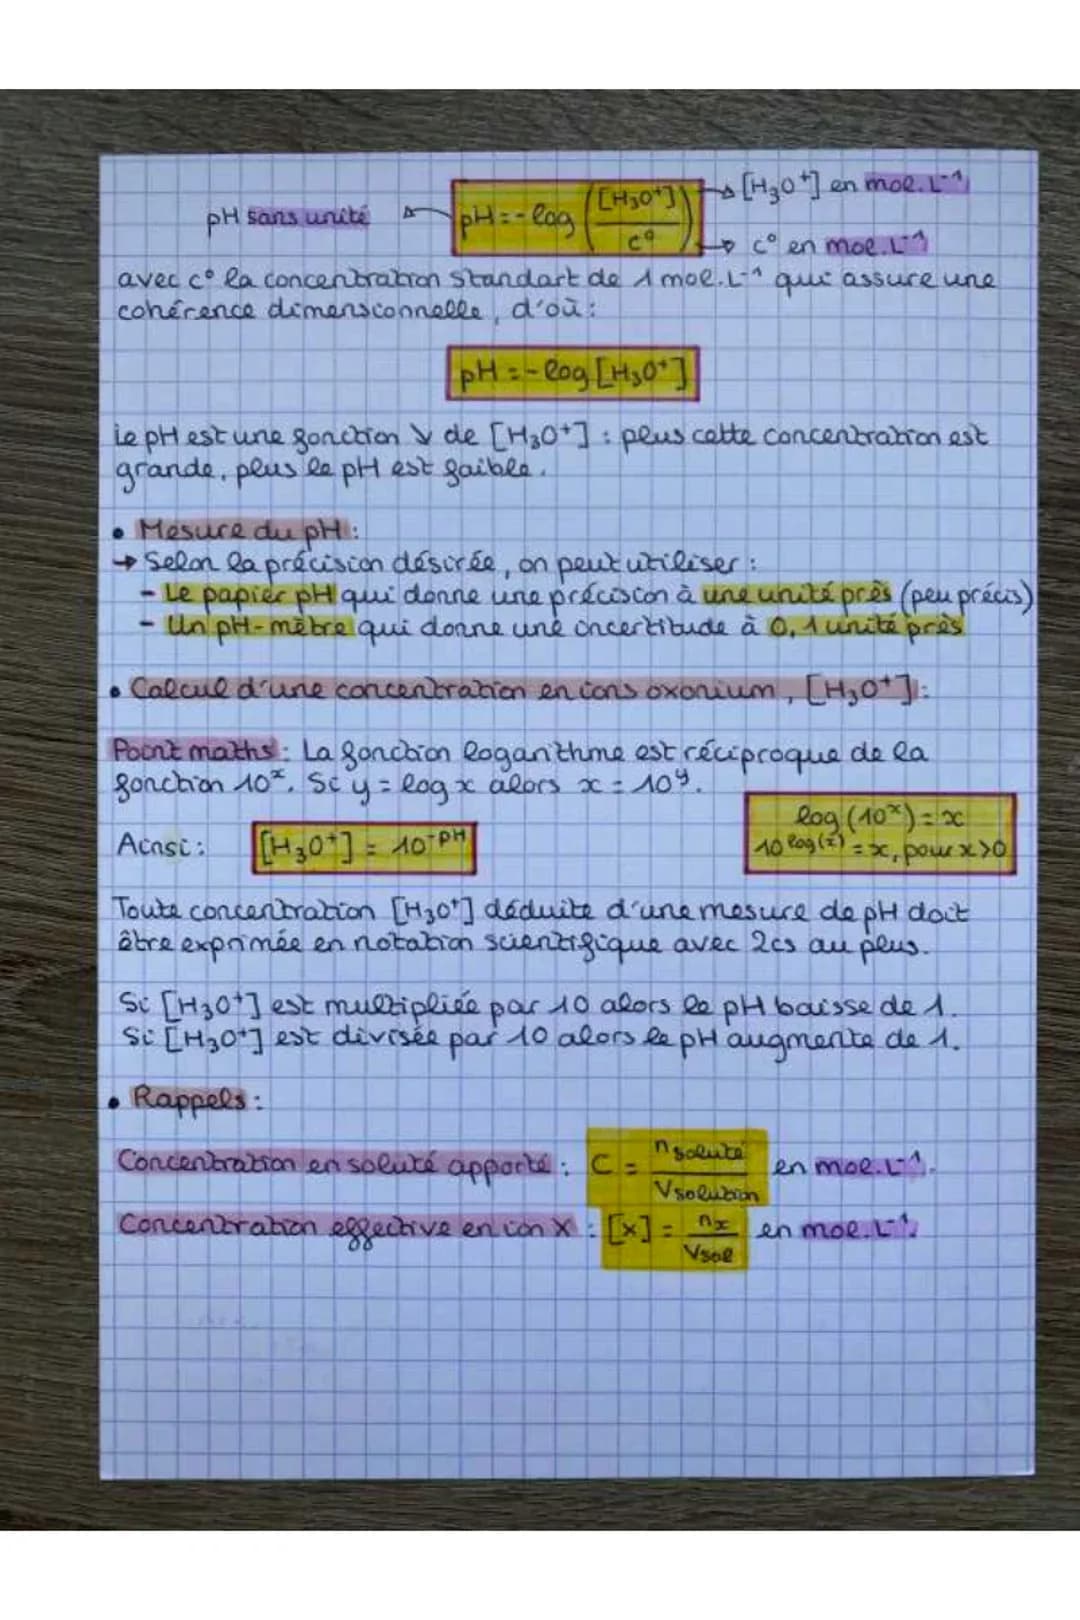 pH sans unité pH = - log ([H₃O⁺] / c°) [H₃O⁺] en mol.L⁻¹
c° en mol.L⁻¹
avec c° la concentration standart de 1 mol.L⁻¹ qui assure une
cohérence dimensionnelle, d'où :
pH = - log [H₃O⁺]
Le pH est une fonction ↘ de [H₃O⁺] : plus cette concentration est
grande, plus le pH est faible.
• Mesure du pH :
→ Selon la précision désirée, on peut utiliser :
- Le papier pH qui donne une précision à une unité près (peu précis)
- Un pH-mètre qui donne une incertitude à 0,1 unité près
• Calcul d'une concentration en ions oxonium, [H₃O⁺] :
Point maths : La fonction logarithme est réciproque de la
fonction 10ˣ. Si y = log x alors x = 10ʸ.
log (10ˣ) = x
Ainsi : [H₃O⁺] = 10⁻ᵖᴴ
10^log(x) = x, pour x > 0
Toute concentration [H₃O⁺] déduite d'une mesure de pH doit
être exprimée en notation scientifique avec 2cs au plus.
Si [H₃O⁺] est multipliée par 10 alors le pH baisse de 1.
Si [H₃O⁺] est divisée par 10 alors le pH augmente de 1.
• Rappels :
Concentration en soluté apporté : C = n soluté / V solution en mol.L⁻¹.
Concentration effective en ion X : [x] = nx / Vsol en mol.L⁻¹.